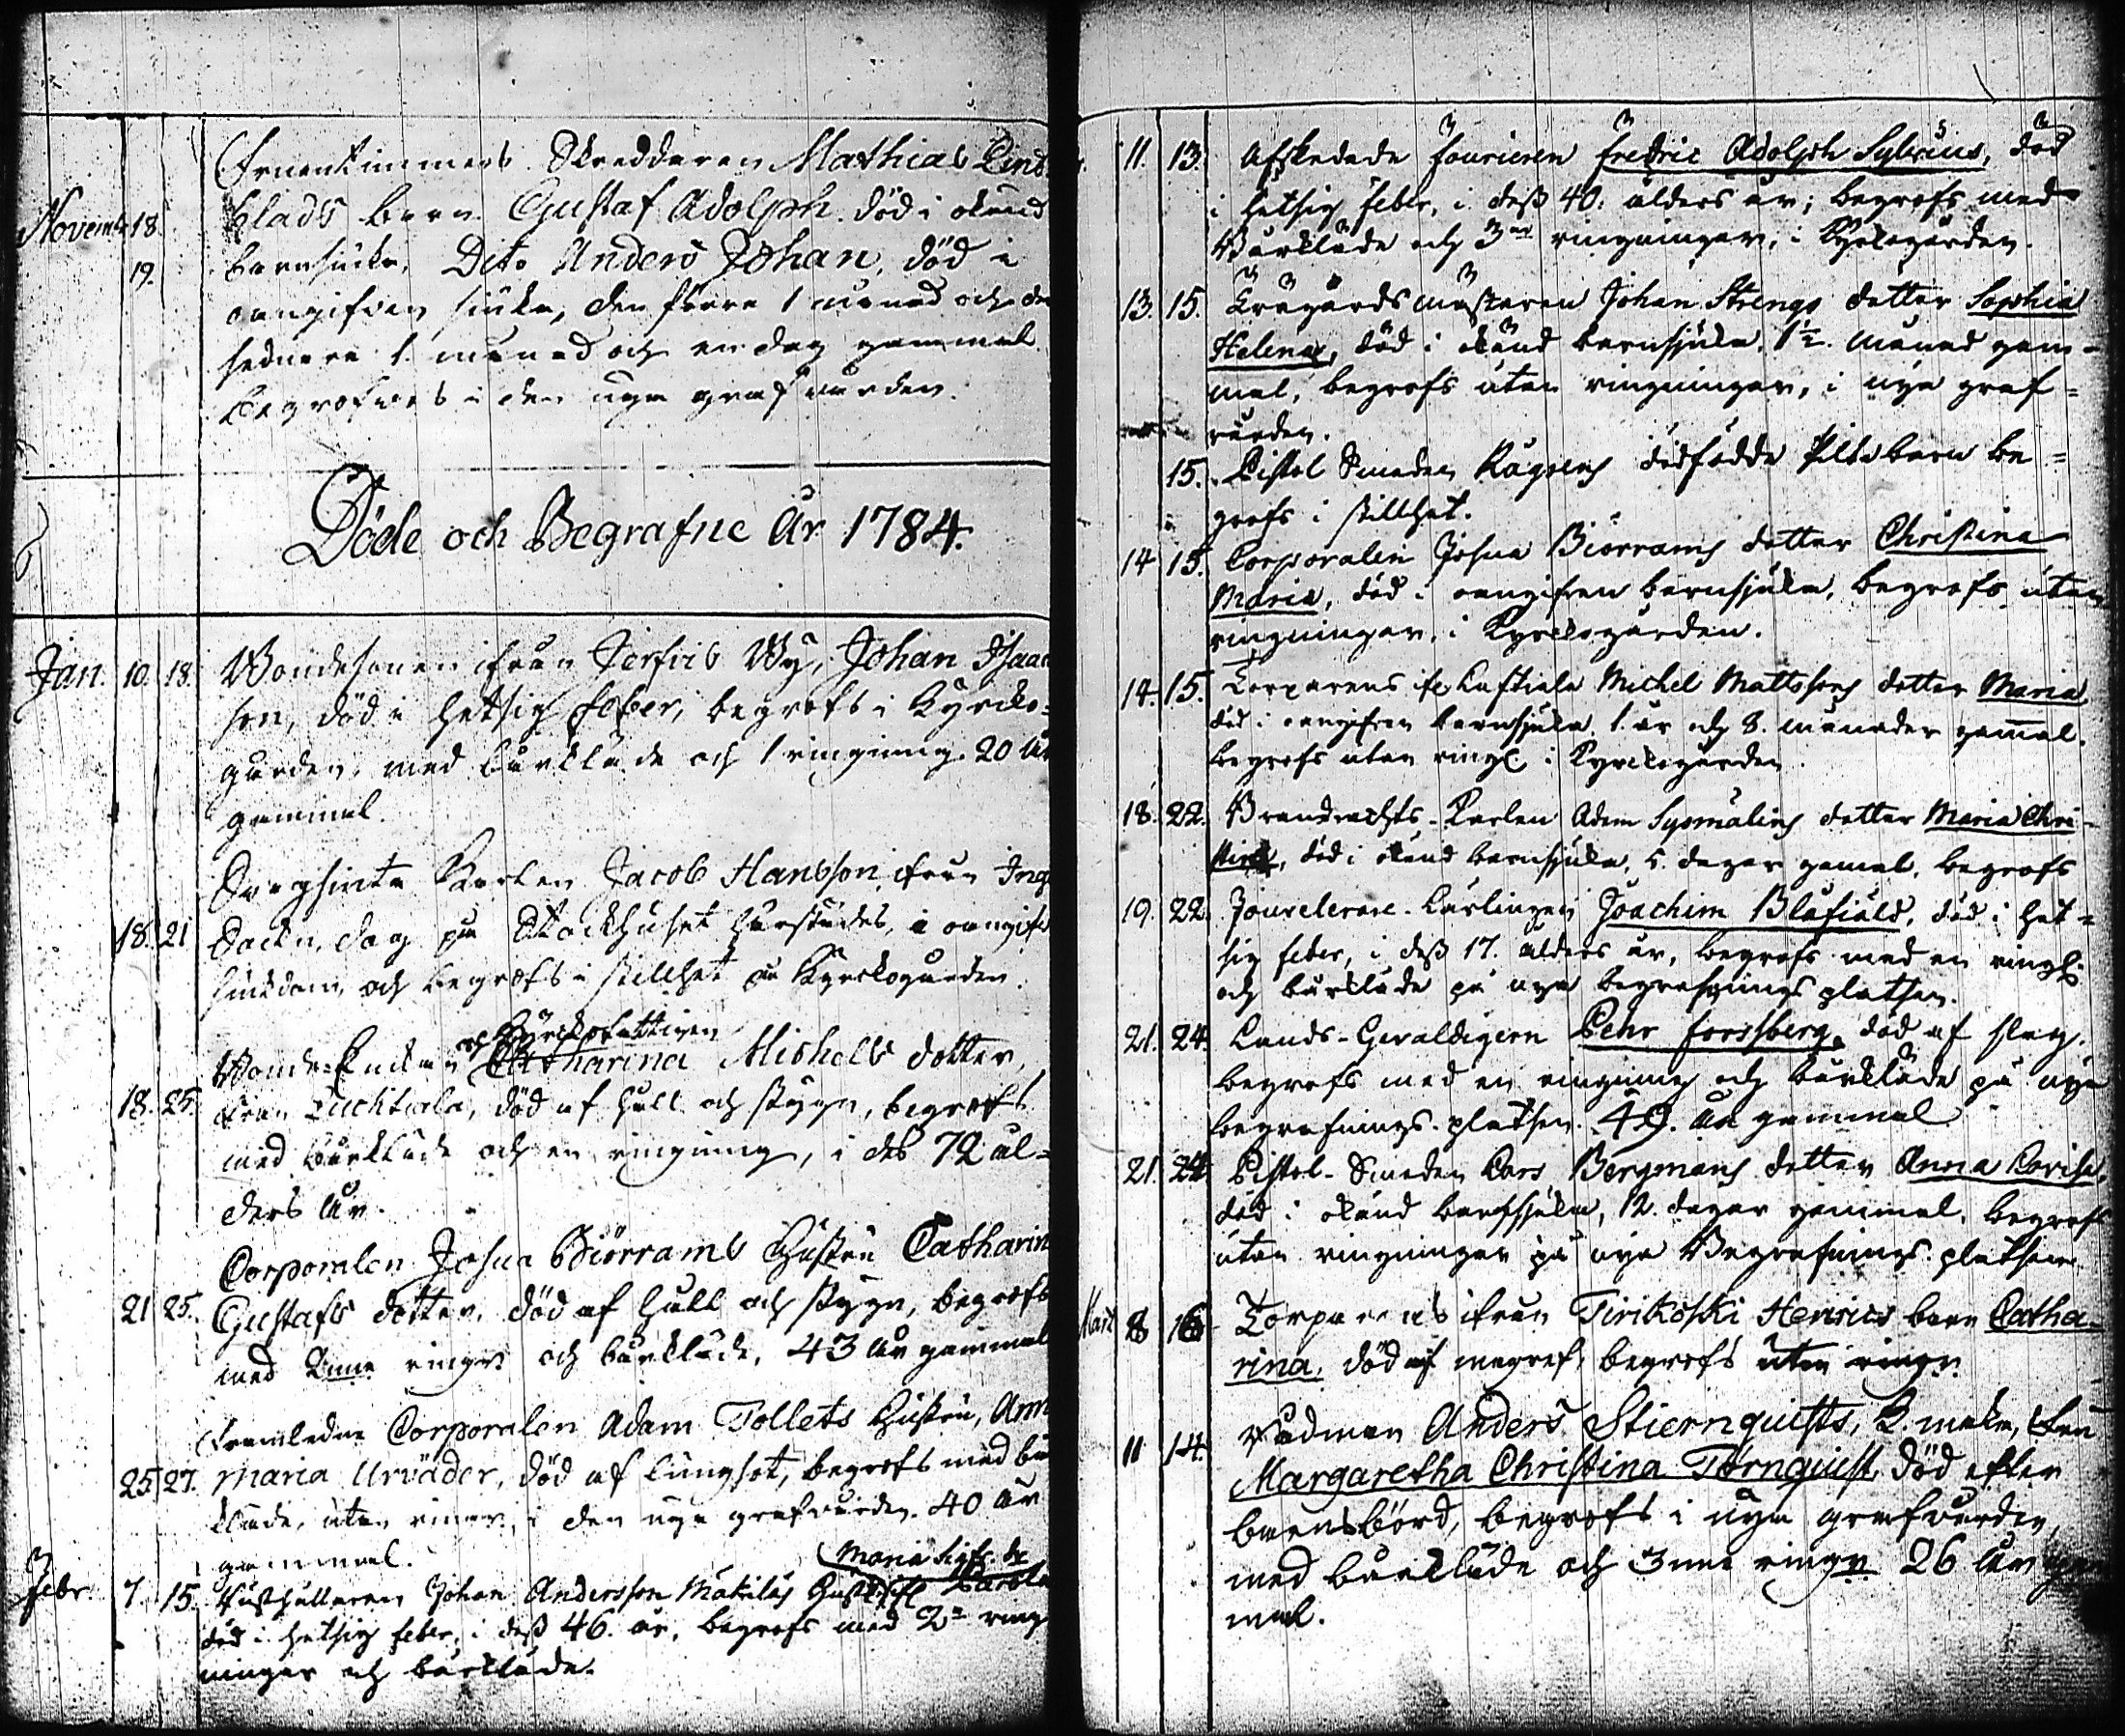 Fruentimmers Skreddaren Mathias Lind
Novemb. 18. blads barn Gustaf Adolph. död i okänd
19. barnsiuka, Dito Anders Johan, död i
oangifven siuka, den förra 1 månad och den
sednare 1. månad och en dag gammal.
begrofwos i den nya grafwården.
Döde och Begrafne År 1784.
Jan. 10. 18. Bondesonen ifrån Jerfvis By, Johan Isaac
son, död i hetsig feber, begrofs i Kyrcko-
gården, med bårkläde och 1 ringning. 20 År
gammal.
Karlen Jacob Hansson, ifrån Ing
18. 21 dog på Stockhuset härstädes, i oangifv
siukdom, och begrofs i stillhet å Kyrckogården.
och Kyrckofattigen
Bonde-Enckan Catharina Michels dotter,
18. 25. från Luchtiala, död af håll och stygn, begrofs
med bårkläde och en ringning, i des 72 ål-
ders År.
Corporalen Josua Biörrams Hustru Catharin
21 25. Gustafs dotter, död af håll och stygn, begrofs
med ringn och bårkläde, 43 År gammal
Framledne Corporalen Adam Tollets Hustru, Ann
25 27. Maria Urväder, död af lungsot, begrofs med bår
kläde, utan ringn, i den nya grafvården. 40 År
gammal.
Maria Sigfr. dr
Febr. 7. 15. Johan Andersson Mäkiläs Hust.
död i hetsig feber, i dess 46. år, begrofs med 2n ring
ningar och bårkläde.
11. 13. Afskedade fourieren Fredric Adolph Sylvius, död
i hetsig feber, i dess 40. ålders år; begrofs med
Bårkläde och 3ne ringningar, i Kyrkogården.
13. 15. Trägårdsmästaren Johan Strengs dotter Sophia
Helena, död i okänd barnsjuka. 1½ månad gam-
mal, begrofs utan ringningar, i nya graf=
vården.
15. Pistol Smeden Rågrens dödfödde barn be=
grofs i stillhet.
14 15. Corporalen Josua Biörrams dotter Christina
Maria, död i oangifven barnsjuka, begrofs utan
ringningar, i Kyrckogården.
14. 15. Torparens Michel Mattssons dotter Maria
död i oangifven barnsjuka, 1 år och 8. månader gamal.
begrofs utan ring. i Kyrckogården.
18. 22. Brandvachts-Karlen Adam Sysmälins dotter Maria Chri-
stina, död i okänd barnsjuka, 5. dagar gamal, begrofs
19. 22 Jouvelerare-Lärlingen Joachim Blåfiäld, död i het=
sig feber, i dess 17. ålders år, begrofs med en ring.
och bårkläde på nya begrafnings platsen.
21. 24. Lands-Gevaldigern Pehr Forssberg, död af slag.
begrofs med en ringning och bårkläde på nya
begrafnings-platsen. 49. År gammal
21. 24 Pistol-Smeden Lars Bergmans dotter Anna Lovisa,
död i okänd barnsjuka, 12. dagar gammal, begrofs
utan ringningar på nya Begrafnings-platsen
Mart 8 16 Torparens ifrån Tirikoski Henrics barn Catha-
rina, död af begrofs utan ringn.
11 14. Rådman Anders Stiernquists, K. maka, Fru
Margaretha Christina Törnquist, död efter
barnsbörd, begrofs i nya grafvården,
med bårkläde och 3nne ringn. 26 År gam
mal.